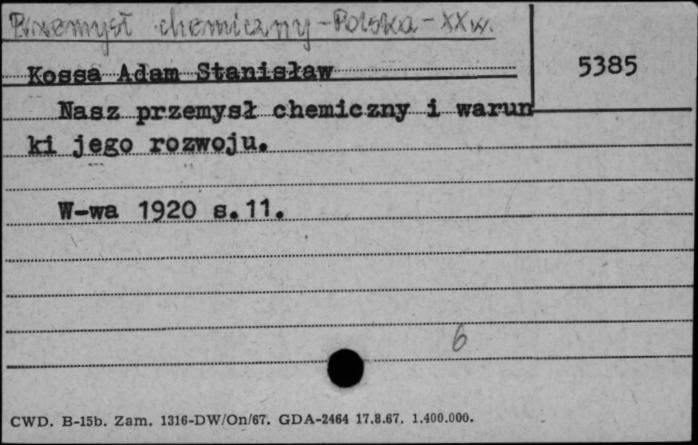 Przemysł chemiczny - Polska - XX w.
Kossa Adam Stanisław
5385
Nasz przemysł chemiczny i warun
ki jego rozwoju.
W-wa 1920 s.11.
6
CWD. B-15b. Zam. 1316-DW/On/67. GDA-2464 17.8.67. 1.400.000.